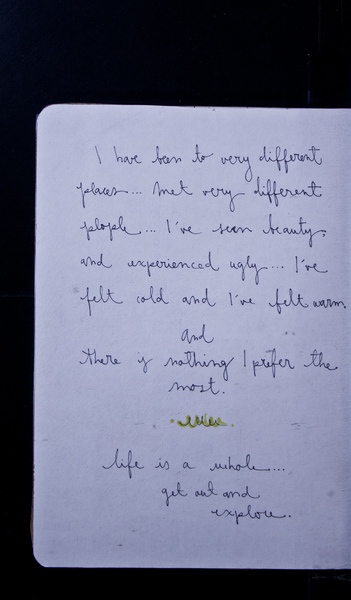 I have been to very different
places... met very different
plople... I've seen beauty,
and experienced ugly... I've
felt cold and I've felt warm.
and
there is nothing I prefer the
most.
life is a whole...
get out and
explore.